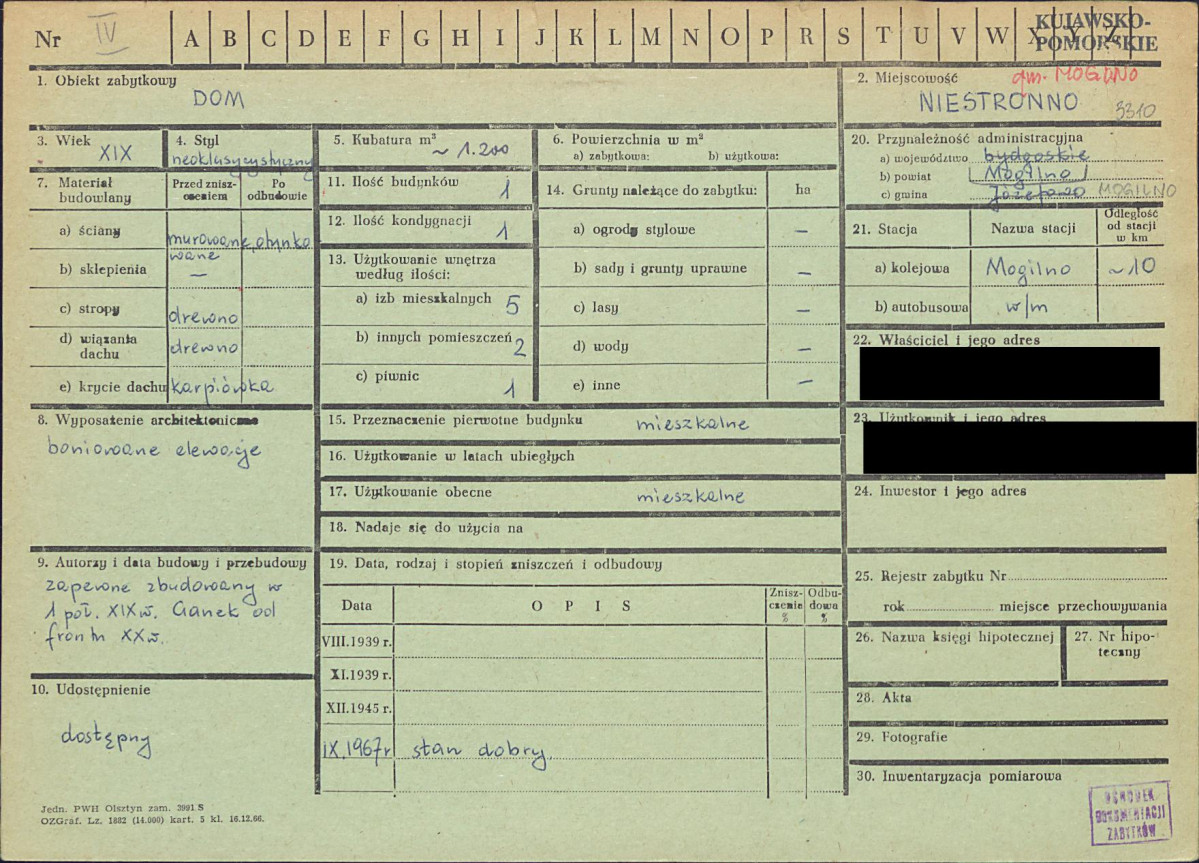 Nr IV A B C D E F G H I J K L M N O P R S T U V W X Y Z
KUJAWSKO-
POMORSKIE
1. Obiekt zabytkowy
DOM
2. Miejscowość gm. MOGILNO
NIESTRONNO 3310
3. Wiek
XIX
4. Styl
neoklasycystyczny
5. Kubatura m³
~ 1.200
6. Powierzchnia w m²
a) zabytkowa: b) użytkowa:
20. Przynależność administracyjna
a) województwo bydgoskie
b) powiat Mogilno
c) gmina Józefowo MOGILNO
7. Materiał
budowlany
Przed znisz-
czeniem
Po
odbudowie
a) ściany murowane, otynko
wane
b) sklepienia —
c) stropy drewno
d) wiązania
dachu drewno
e) krycie dachu karpiówka
11. Ilość budynków 1
12. Ilość kondygnacji 1
13. Użytkowanie wnętrza
według ilości:
a) izb mieszkalnych 5
b) innych pomieszczeń 2
c) piwnic 1
14. Grunty należące do zabytku: ha
a) ogrody stylowe —
b) sady i grunty uprawne —
c) lasy —
d) wody —
e) inne —
21. Stacja Nazwa stacji Odległość
od stacji
w km
a) kolejowa Mogilno ~10
b) autobusowa w/m
22. Właściciel i jego adres
23. Użytkownik i jego adres
8. Wyposażenie architektoniczne
boniowane elewacje
15. Przeznaczenie pierwotne budynku mieszkalne
16. Użytkowanie w latach ubiegłych
17. Użytkowanie obecne mieszkalne
18. Nadaje się do użycia na
24. Inwestor i jego adres
9. Autorzy i data budowy i przebudowy
zapewne zbudowany w
1 poł. XIX w. Ganek od
frontu XX w.
10. Udostępnienie
dostępny
19. Data, rodzaj i stopień zniszczeń i odbudowy
Data O P I S Znisz-
czenie
% Odbu-
dowa
%
VIII.1939 r.
XI.1939 r.
XII.1945 r.
IX.1967r stan dobry.
25. Rejestr zabytku Nr
rok miejsce przechowywania
26. Nazwa księgi hipotecznej
27. Nr hipo-
teczny
28. Akta
29. Fotografie
30. Inwentaryzacja pomiarowa
OŚRODEK
DOKUMENTACJI
ZABYTKÓW
Jedn. PWH Olsztyn zam. 3991 S
OZGraf. Lz. 1882 (14.000) kart. 5 kl. 16.12.66.